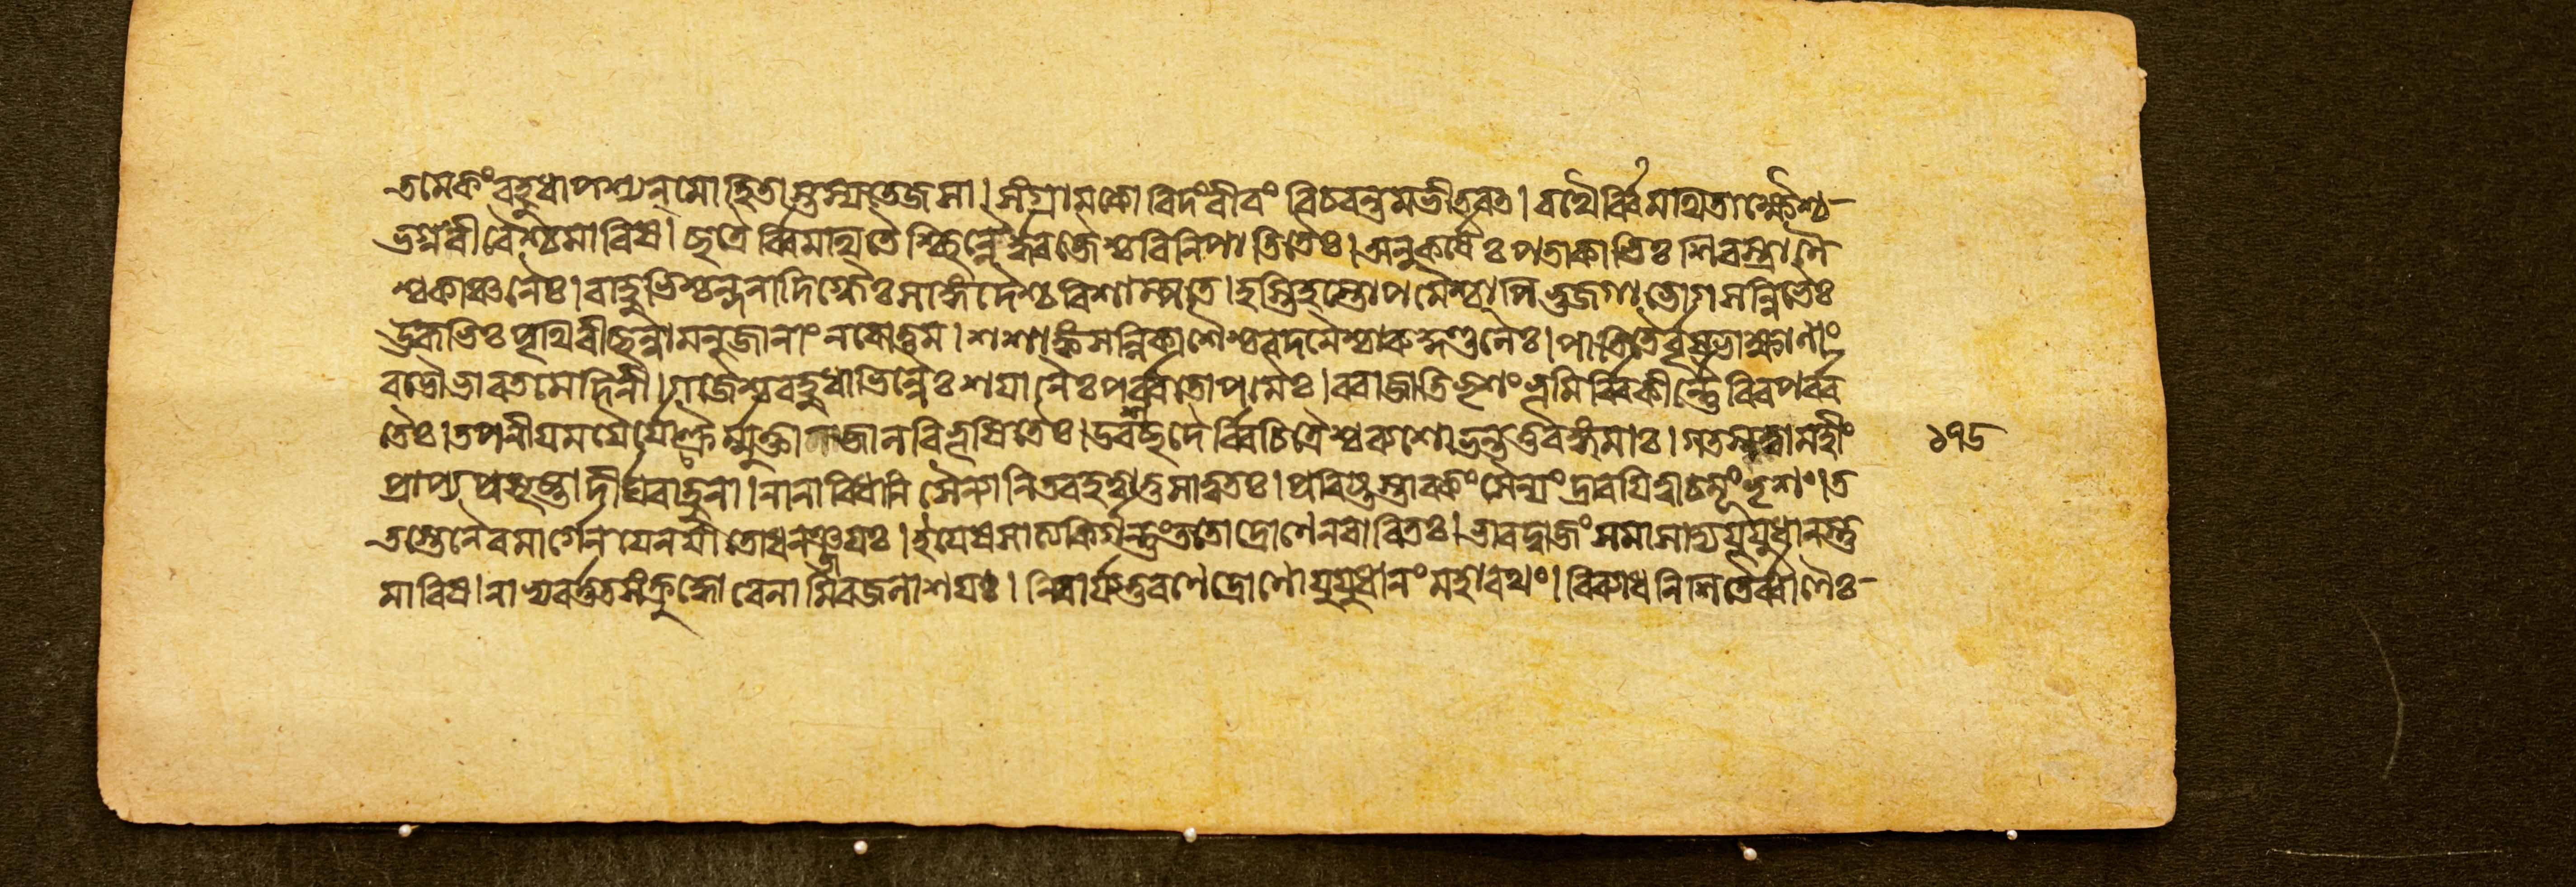 তমেকং বহুধাপশ্যন্ মোহিতাস্তস্য তেজসা। সংগ্রামকোবিদং বীরং বিচরন্তমভীতবত। রথৈর্ব্বিমথিতাক্ষৈশ্চ-
ভগ্ননীৰৈশ্চ মারিষ। ছত্রৈর্ব্বিমথিতৈশ্ছিন্নৈর্ধ্বজৈশ্চ বিনিপাতিতৈঃ। অনুকর্ষৈঃ পতাকাভিঃ শিরস্ত্রাণৈ
শ্চ কাঞ্চনৈঃ। বাহুভিশ্চন্দনাদিগ্ধৈঃ সাঙ্গদৈশ্চ বিশাম্পতে। হস্তিহস্তোপমৈশ্চাপি ভুজগাভোগসন্নিভৈঃ
ঊরুভিঃ পৃথিবীচ্ছন্না মনুজানাং নরোত্তম। শশাঙ্কসন্নিকাশৈশ্চ বদনৈশ্চারুকুণ্ডলৈঃ। পতিতৈর্বৃষভাক্ষাণাং
বভৌ ভারত মেদিনী। গজৈশ্চ বহুধা ভিন্নৈঃ শয়ানৈঃ পর্ব্বতোপমৈঃ। ররাজাতিভৃশং ভূমির্ব্বিকীর্ণৈরিব পর্ব্ব
তৈঃ। তপনীয়ময়ৈর্যোক্ত্রৈর্ম্মুক্তাজালবিভূষিতৈঃ। উরশ্ছদৈর্ব্বিচিত্রৈশ্চ ব্যশোভন্ত তুরঙ্গমাঃ। গতসত্ত্বা মহীং
প্রাপ্য প্রমৃষ্টা দীর্ঘবাহুনা। নানাবিধানি সৈন্যানি তব হত্বা তু সাত্বতঃ। প্রবিষ্টস্তাবকং সৈন্যং দ্রাবয়িত্বা চমূং ভৃশং। ত
তস্তেনৈব মার্গেন যেন যাতো ধনঞ্জয়ঃ। ইয়েষ সাত্যকির্গন্তুং ততো দ্রোণেন বারিতঃ। ভারদ্বাজং সমাসাদ্য যুযুধানস্তু
মারিষ। নাভ্যবর্ত্তত সংক্রুদ্ধো বেলামিব জলাশয়ঃ। নিবার্য্য তু রণে দ্রোণো যুযুধানং মহারথং। বিব্যাধ নিশিতৈর্ব্বাণৈঃ-
১৭৫